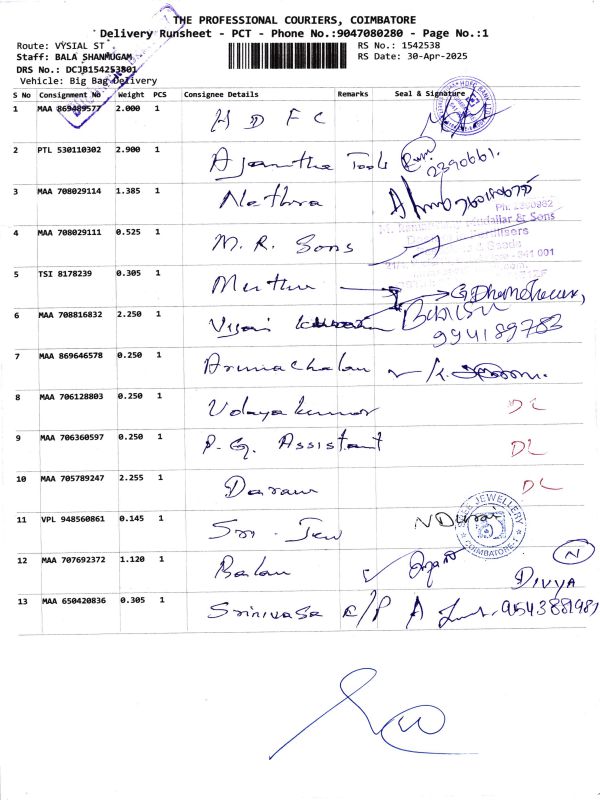 THE PROFESSIONAL COURIERS, COIMBATORE
Delivery Runsheet - PCT - Phone No.:9047080280 - Page No.:1
Route: VYSIAL ST RS No.: 1542538
Staff: BALA SHANMUGAM RS Date: 30-Apr-2025
DRS No.: DCJB154253801
Vehicle: Big Bag Delivery
S No Consignment No Weight PCS Consignee Details Remarks Seal & Signature
1 MAA 869489577 2.000 1 H D F C
2 PTL 530110302 2.900 1 Ajantha Tools 2390661.
3 MAA 708029114 1.385 1 Nethra
Ph. 2390962
4 MAA 708029111 0.525 1 M. R. Sons
& Sons
641 001
5 TSI 8178239 0.305 1 Muthu
6 MAA 708816832 2.250 1 Vijai
994189783
7 MAA 869646578 0.250 1 Arunachalam
8 MAA 706128803 0.250 1 Udayakumar DL
9 MAA 706360597 0.250 1 P. G. Assistant DL
10 MAA 705789247 2.255 1 DL
11 VPL 948560861 0.145 1 Sri . Jew N Durai
JEWELLERY
COIMBATORE-1
12 MAA 707692372 1.120 1 Balan N
DIVYA
13 MAA 650420836 0.305 1 Srinivasa